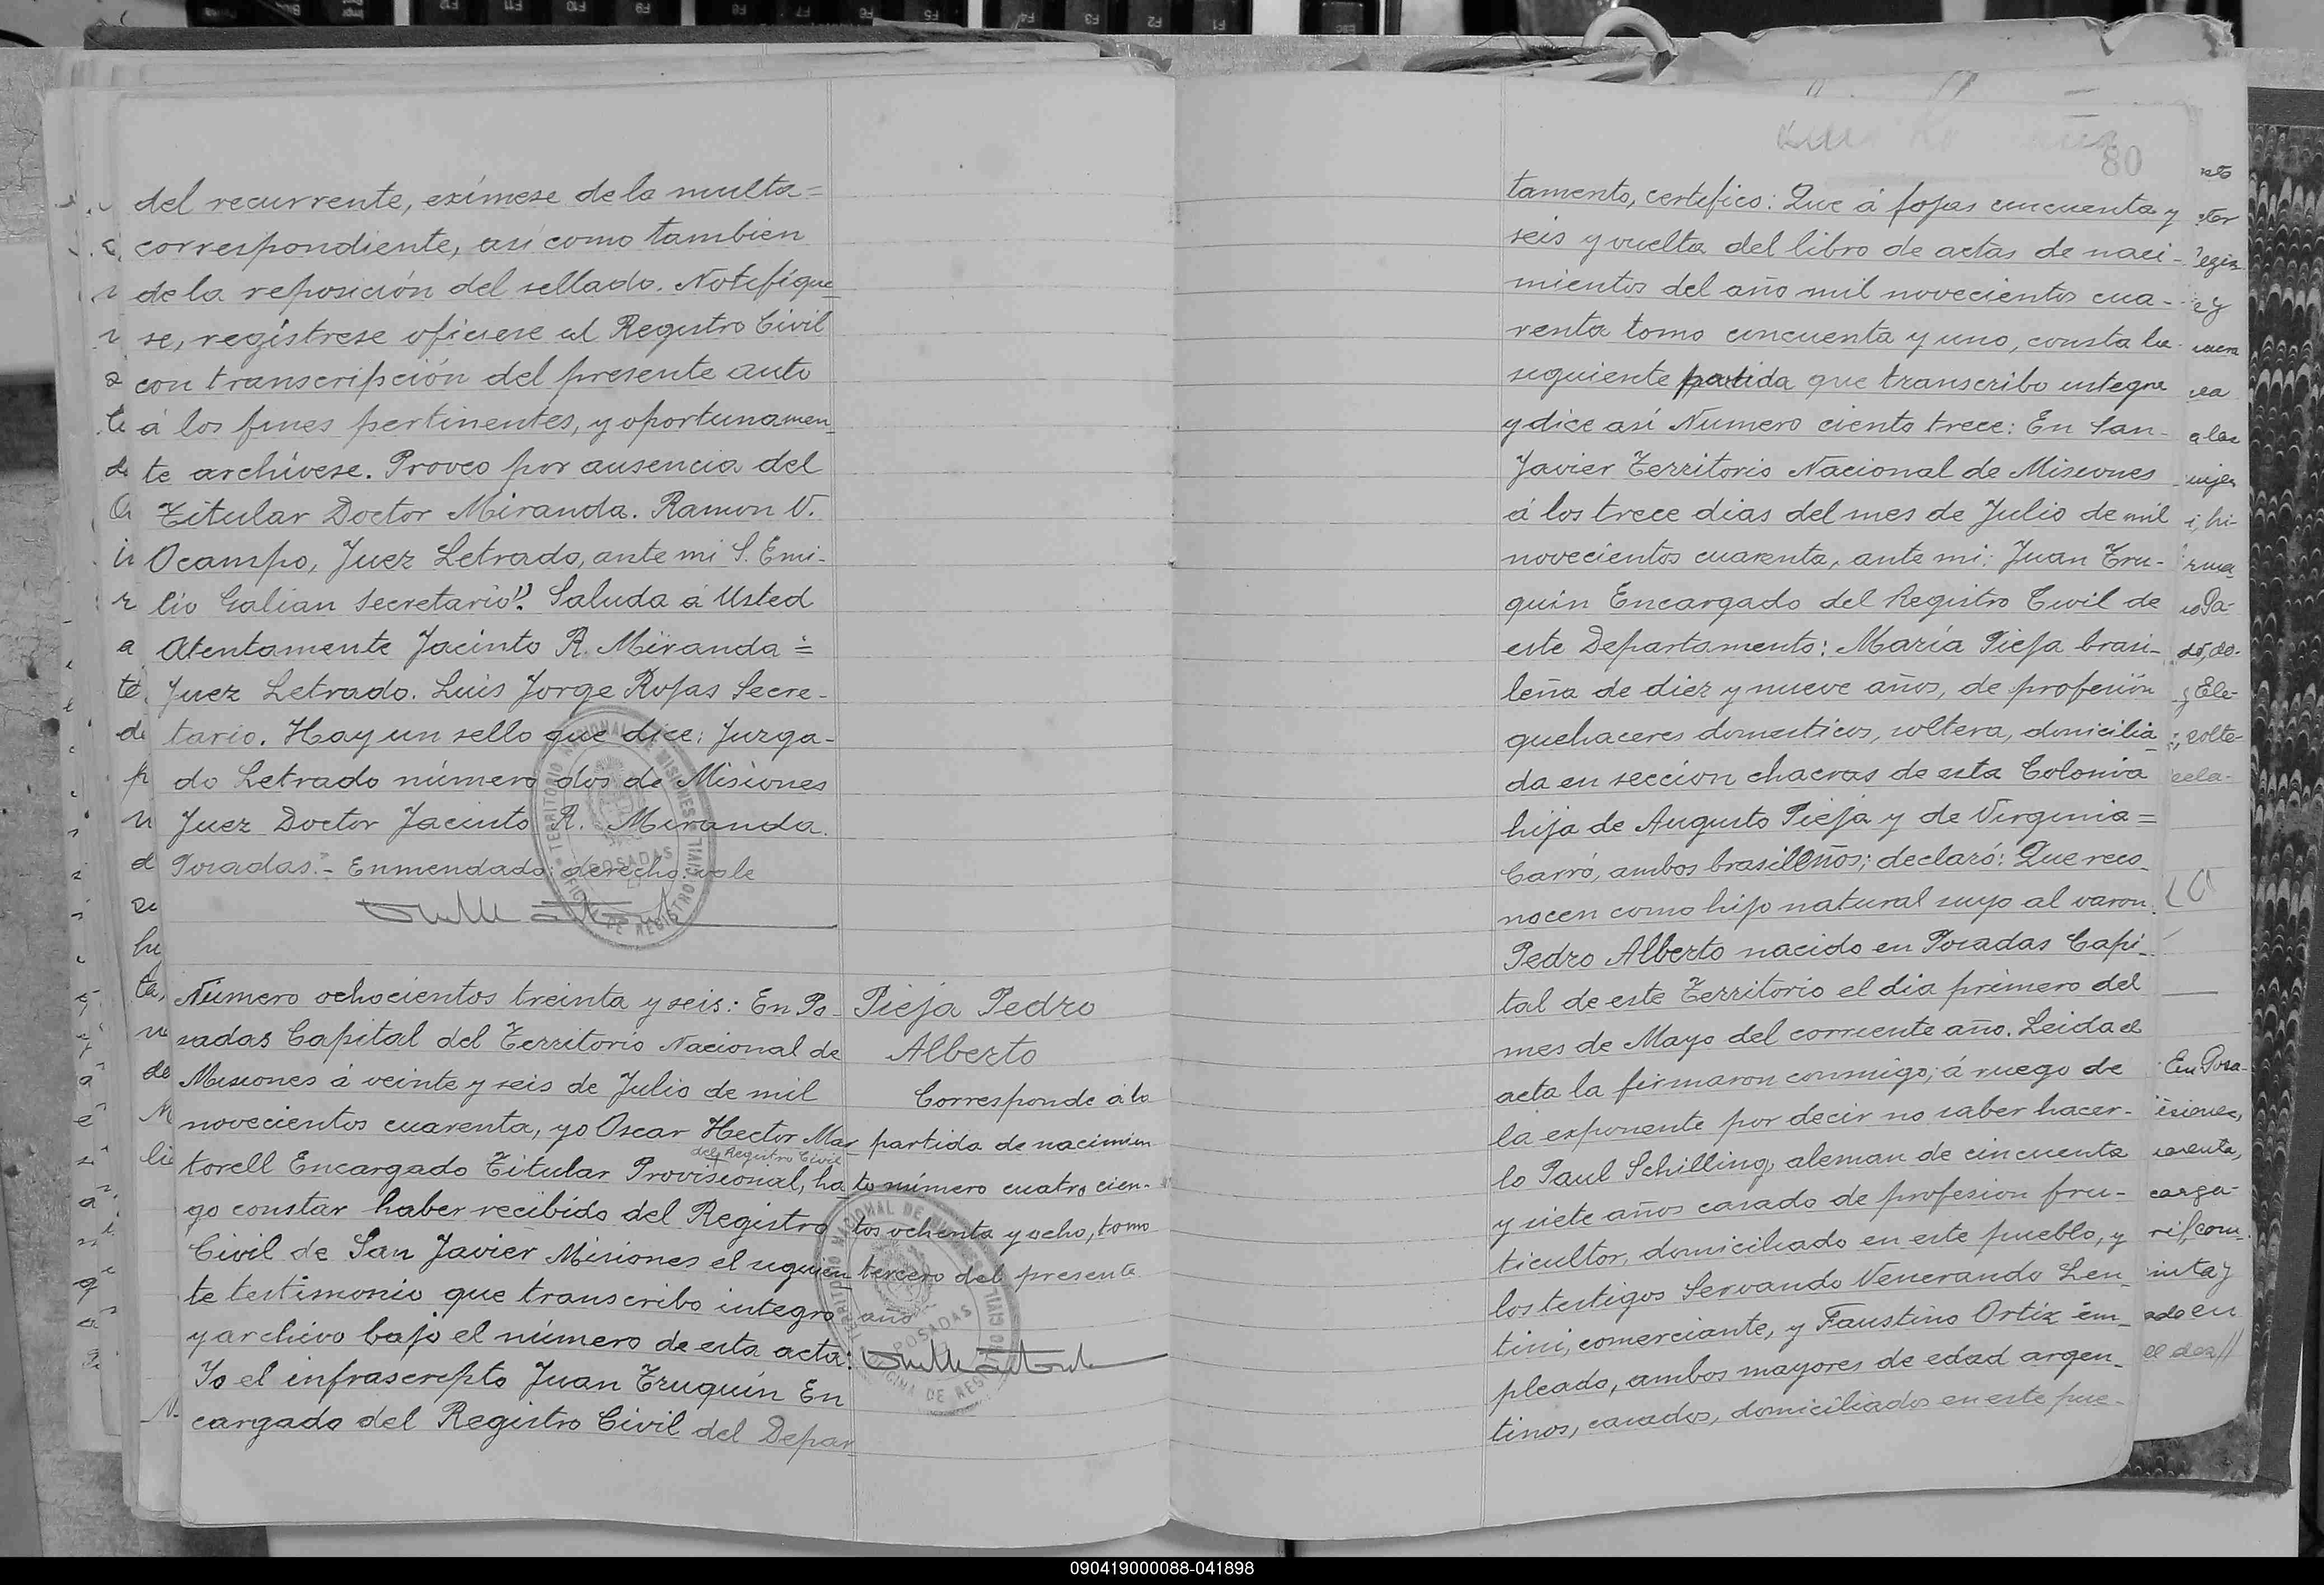 del recurrente, exímese de la multa=
correspondiente, así como tambien
de la reposición del sellado. Notifíque_
se, regístrese ofíciese al Registro Civil
con transcripción del presente auto
á los fines pertinentes, y oportunamen_
te archívese. Proveo por ausencia del
Titular Doctor Miranda. Ramon V.
Ocampo, Juez Letrado, ante mi S. Emi-
lio Galian Secretario". Saluda á Usted
Atentamente Jacinto R. Miranda=
Juez Letrado. Luis Jorge Rojas Secre-
tario. Hay un sello que dice: Juzga-
do Letrado número dos de Misiones
Juez Doctor Jacinto R. Miranda.
Posadas.- Enmendado: derecho: vale
TERRITORIO NACIONAL DE MISIONES
OFICINA DE REGISTRO CIVIL
POSADAS
Número ochocientos treinta y seis: En Po-
sadas Capital del Territorio Nacional de
Misiones á veinte y seis de Julio de mil
novecientos cuarenta, yo Oscar Hector Mar_
del Registro Civil
torell Encargado Titular Provisional, ha_
go constar haber recibido del Registro
Civil de San Javier Misiones el siguien_
te testimonio que transcribo integro
y archivo bajo el número de esta acta:
Yo el infrascripto Juan Truquin En
cargado del Registro Civil del Depar_
Pieja Pedro
Alberto
Corresponde á la
partida de nacimien
to número cuatro cien-
tos ochenta y ocho, tomo
tercero del presente
año
TERRITORIO NACIONAL DE MISIONES
OFICINA DE REGISTRO CIVIL
POSADAS
80
tamento, certifico: Que á fojas cincuenta y
seis y vuelta del libro de actas de naci-
mientos del año mil novecientos cua-
renta tomo cincuenta y uno, consta la
siguiente partida que transcribo integra
y dice así Numero ciento trece: En San-
Javier Territorio Nacional de Misiones
á los trece dias del mes de Julio de mil
novecientos cuarenta, ante mi: Juan Tru-
quin Encargado del Registro Civil de
este Departamento: María Pieja brasi-
leña de diez y nueve años, de profesión
quehaceres domesticos, soltera, domicilia_
da en sección chacras de esta Colonia
hija de Augusto Pieja y de Virginia=
Carró, ambos brasileños; declaró: Que reco_
nocen como hijo natural suyo al varon
Pedro Alberto nacido en Posadas Capi_
tal de este Territorio el dia primero del
mes de Mayo del corriente año. Leida el
acta la firmaron conmigo; á ruego de
la exponente por decir no saber hacer-
lo Paul Schilling, aleman de cincuenta
y siete años casado de profesion fru-
ticultor, domiciliado en este pueblo, y
los testigos Servando Venerando Len_
tini, comerciante, y Faustino Ortiz em_
pleado, ambos mayores de edad argen_
tinos, casados, domiciliados en este pue-
090419000088-041898